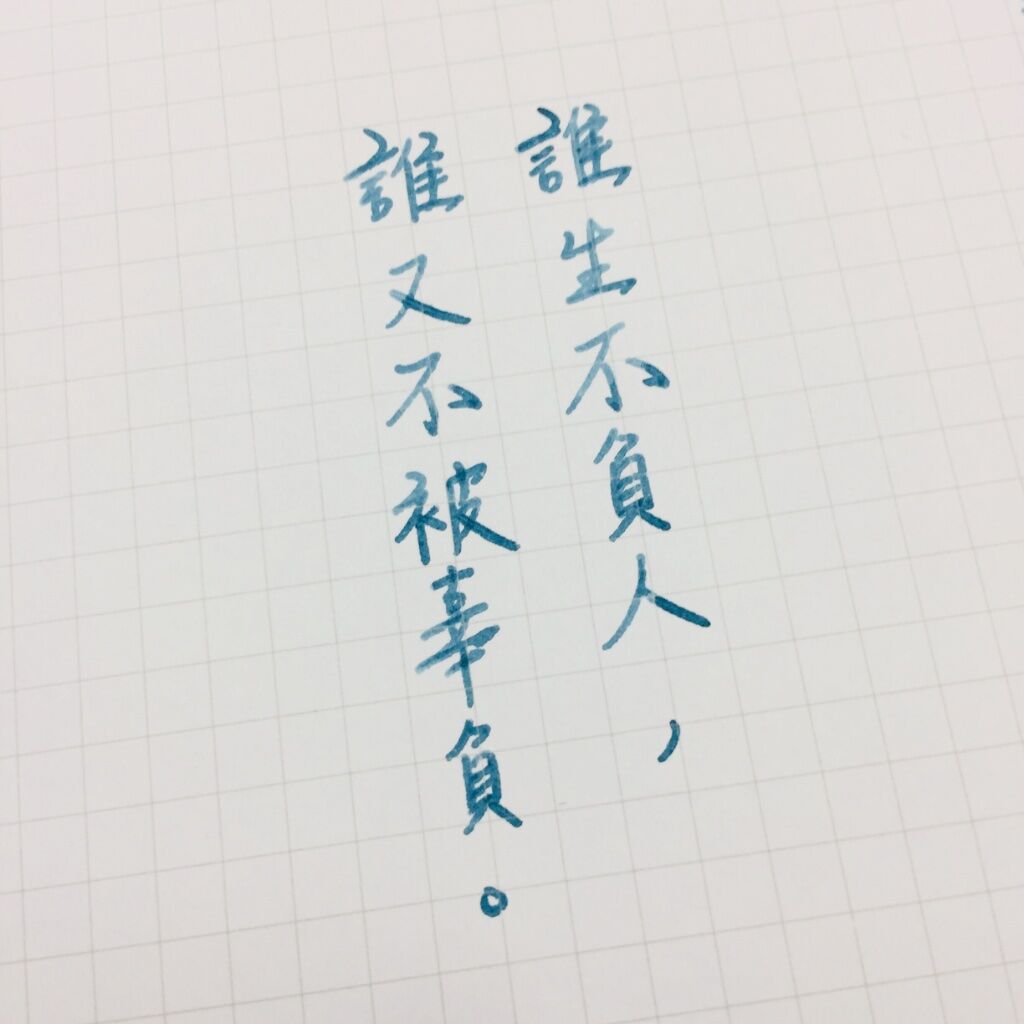 誰生不負人，
誰又不被辜負。